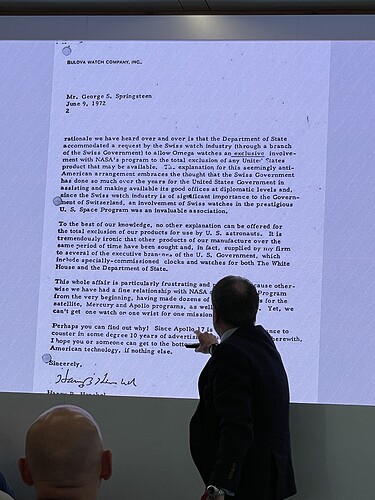 BULOVA WATCH COMPANY, INC.
Mr. George S. Springsteen
June 9, 1972
2
rationale we have heard over and over is that the Department of State
accommodated a request by the Swiss watch industry (through a branch
of the Swiss Government) to allow Omega watches an exclusive involve-
ment with NASA's program to the total exclusion of any United States
product that may be available. The explanation for this seemingly anti-
American arrangement embraces the thought that the Swiss Government
has done so much over the years for the United States Government in
assisting and making available its good offices at diplomatic levels and,
since the Swiss watch industry is of significant importance to the Govern-
ment of Switzerland, an involvement of Swiss watches in the prestigious
U. S. Space Program was an invaluable association.
To the best of our knowledge, no other explanation can be offered for
the total exclusion of our products for use by U. S. astronauts. It is
tremendously ironic that other products of our manufacture over the
same period of time have been sought and, in fact, supplied by my firm
to several of the executive branches of the U. S. Government, which
include specially-commissioned clocks and watches for both The White
House and the Department of State.
This whole affair is particularly frustrating and because other-
wise we have had a fine relationship with NASA Program
from the very beginning, having made dozens of for the
satellite, Mercury and Apollo programs, as well Yet, we
can't get one watch or one wrist for one mission
Perhaps you can find out why! Since Apollo 17 is to
counter in some degree 10 years of herewith,
I hope you or someone can get to the
American technology, if nothing else.
Sincerely,